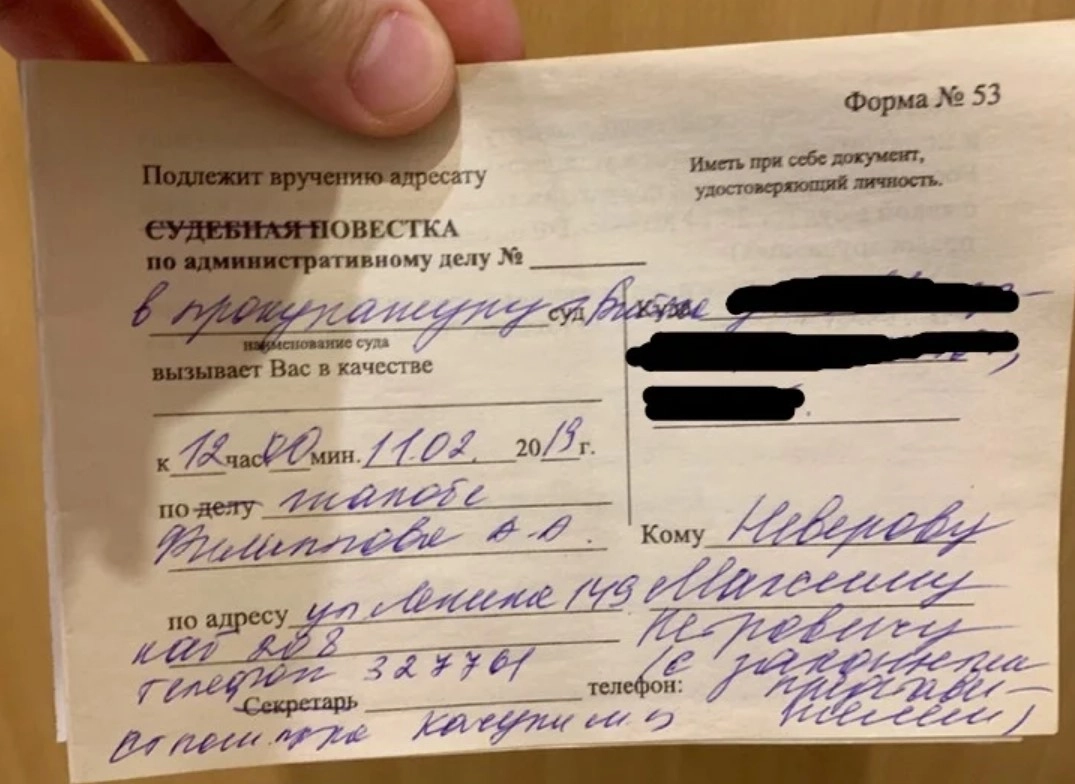 Форма № 53
Подлежит вручению адресату
Иметь при себе документ,
удостоверяющий личность.
СУДЕБНАЯ ПОВЕСТКА
по административному делу №
в прокуратуру суд
Куда
наименование суда
вызывает Вас в качестве
к 12 час 00 мин. 11.02. 2019 г.
по делу жалобе
Филиппова А.А.
Кому Неверову
Максиму
Петровичу
(с законным
представи-
телем)
по адресу ул Ленина 149
каб 208
телефон 327761
Секретарь
телефон: